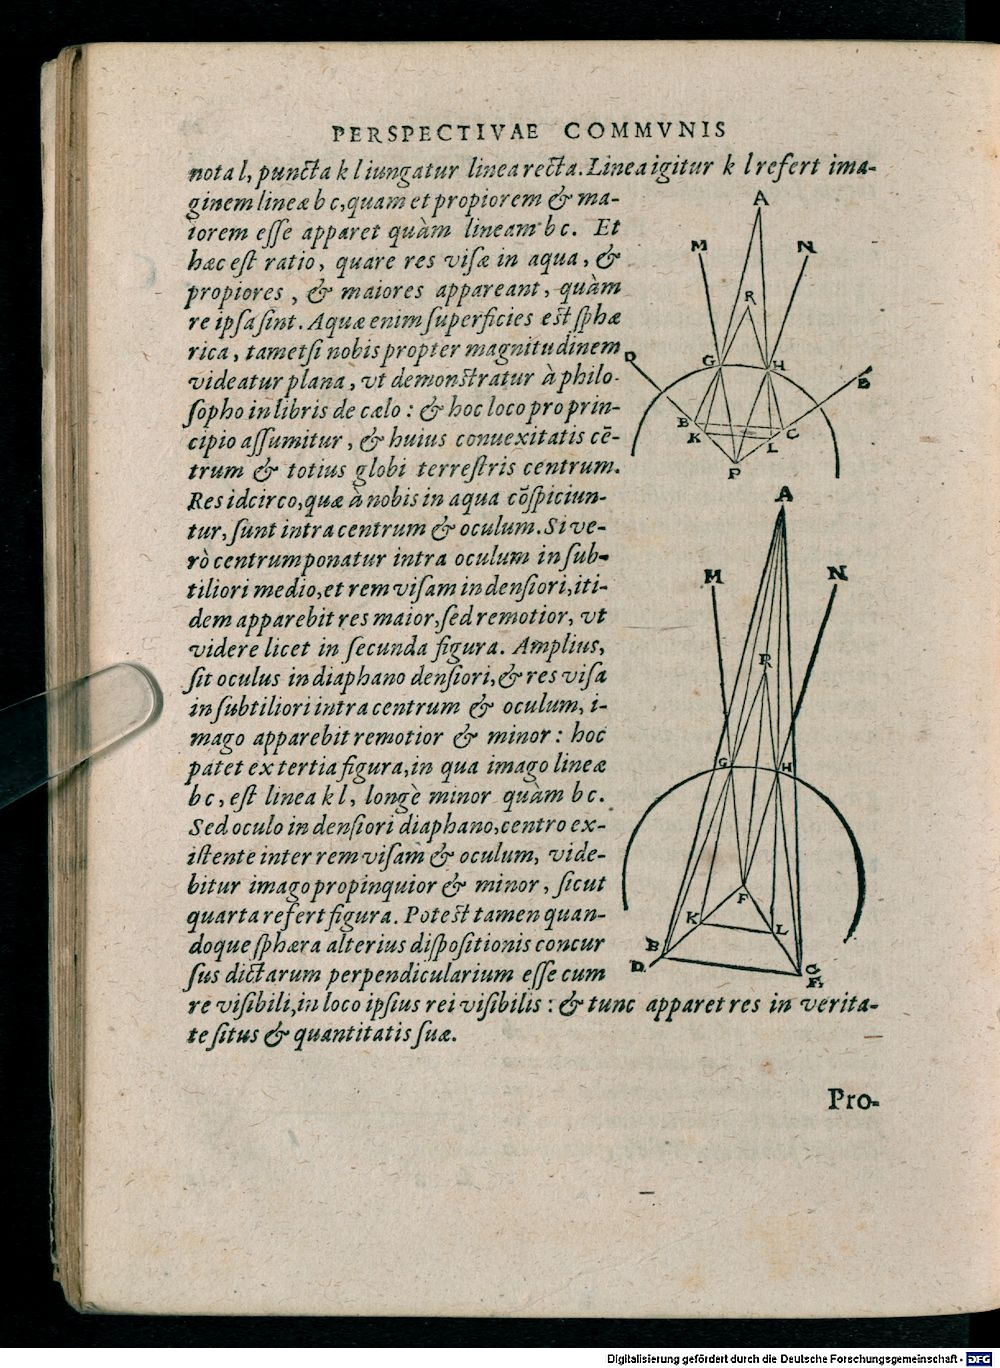 PERSPECTIVAE COMMVNIS
nota l, puncta k l iungatur linea recta. Linea igitur k l refert ima-
ginem lineæ b c, quam et propiorem & ma-
iorem esse apparet quàm lineam b c. Et
hæc est ratio, quare res visæ in aqua, &
propiores, & maiores appareant, quàm
re ipsa sint. Aquæ enim superficies est sphæ
rica, tametsi nobis propter magnitudinem
videatur plana, vt demonstratur à philo-
sopho in libris de cælo: & hoc loco pro prin-
cipio assumitur, & huius conuexitatis cē-
trum & totius globi terrestris centrum.
Res idcirco, quæ à nobis in aqua cōspiciun-
tur, sunt intra centrum & oculum. Si ve-
rò centrum ponatur intra oculum in sub-
tiliori medio, et rem visam in densiori, iti-
dem apparebit res maior, sed remotior, vt
videre licet in secunda figura. Amplius,
sit oculus in diaphano densiori, & res visa
in subtiliori intra centrum & oculum, i-
mago apparebit remotior & minor: hoc
patet ex tertia figura, in qua imago lineæ
b c, est linea k l, longè minor quàm b c.
Sed oculo in densiori diaphano, centro ex-
istente inter rem visam & oculum, vide-
bitur imago propinquior & minor, sicut
quarta refert figura. Potest tamen quan-
doque sphæra alterius dispositionis concur
sus dictarum perpendicularium esse cum
re visibili, in loco ipsius rei visibilis: & tunc apparet res in verita-
te situs & quantitatis suæ.
Pro-
A
M N
R
D G H E
B C
K L
P
A
M N
R
G H
F
K L
B C
D
Digitalisierung gefördert durch die Deutsche Forschungsgemeinschaft - DFG